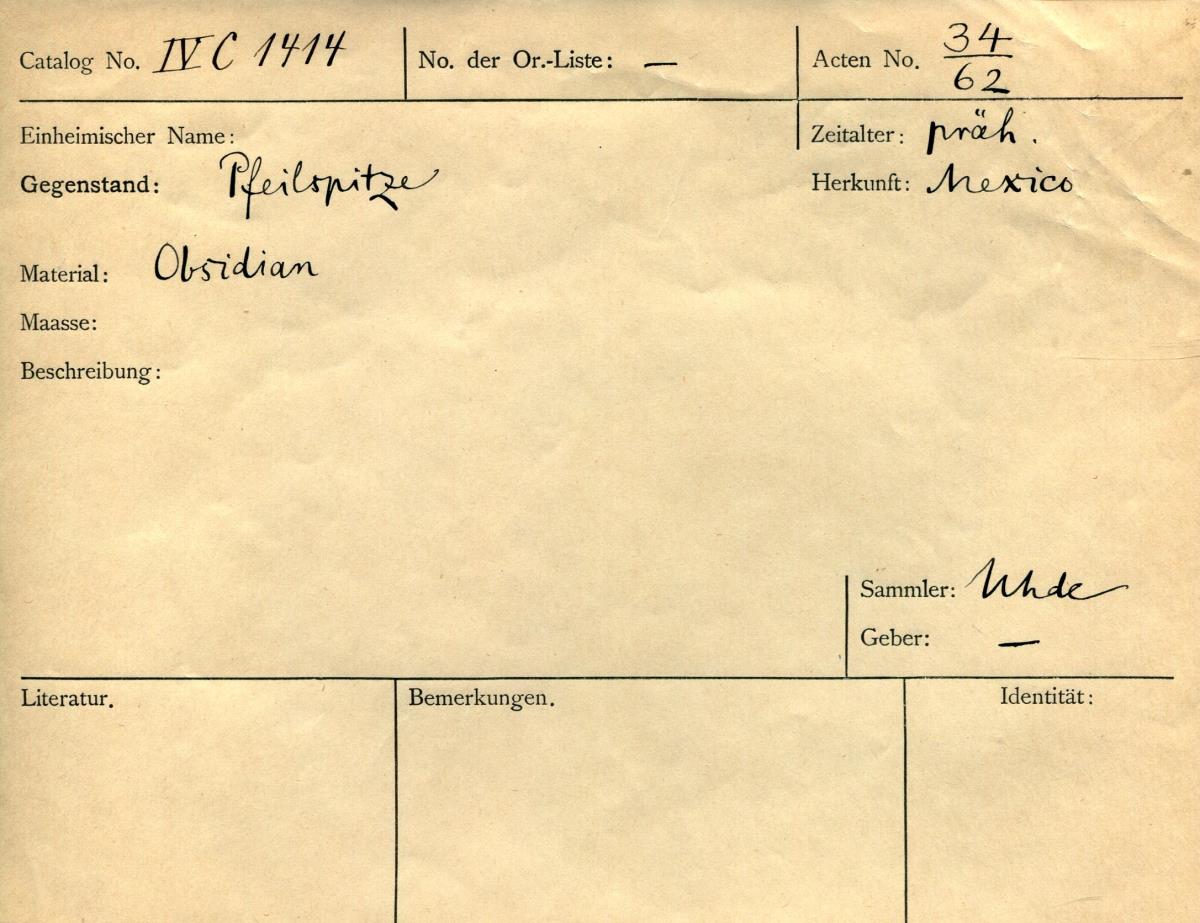 Catalog No. IV C 1414 No. der Or.-Liste: — Acten No. 34/62
Einheimischer Name: Zeitalter: präh.
Gegenstand: Pfeilspitze Herkunft: Mexico
Material: Obsidian
Maasse:
Beschreibung:
Sammler: Uhde
Geber: —
Literatur. Bemerkungen. Identität: